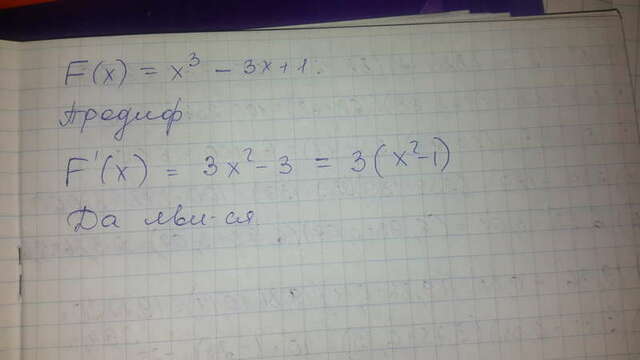 F(x) = x³ - 3x + 1.
Продиф
F'(x) = 3x² - 3 = 3(x² - 1)
Да яви-ся.